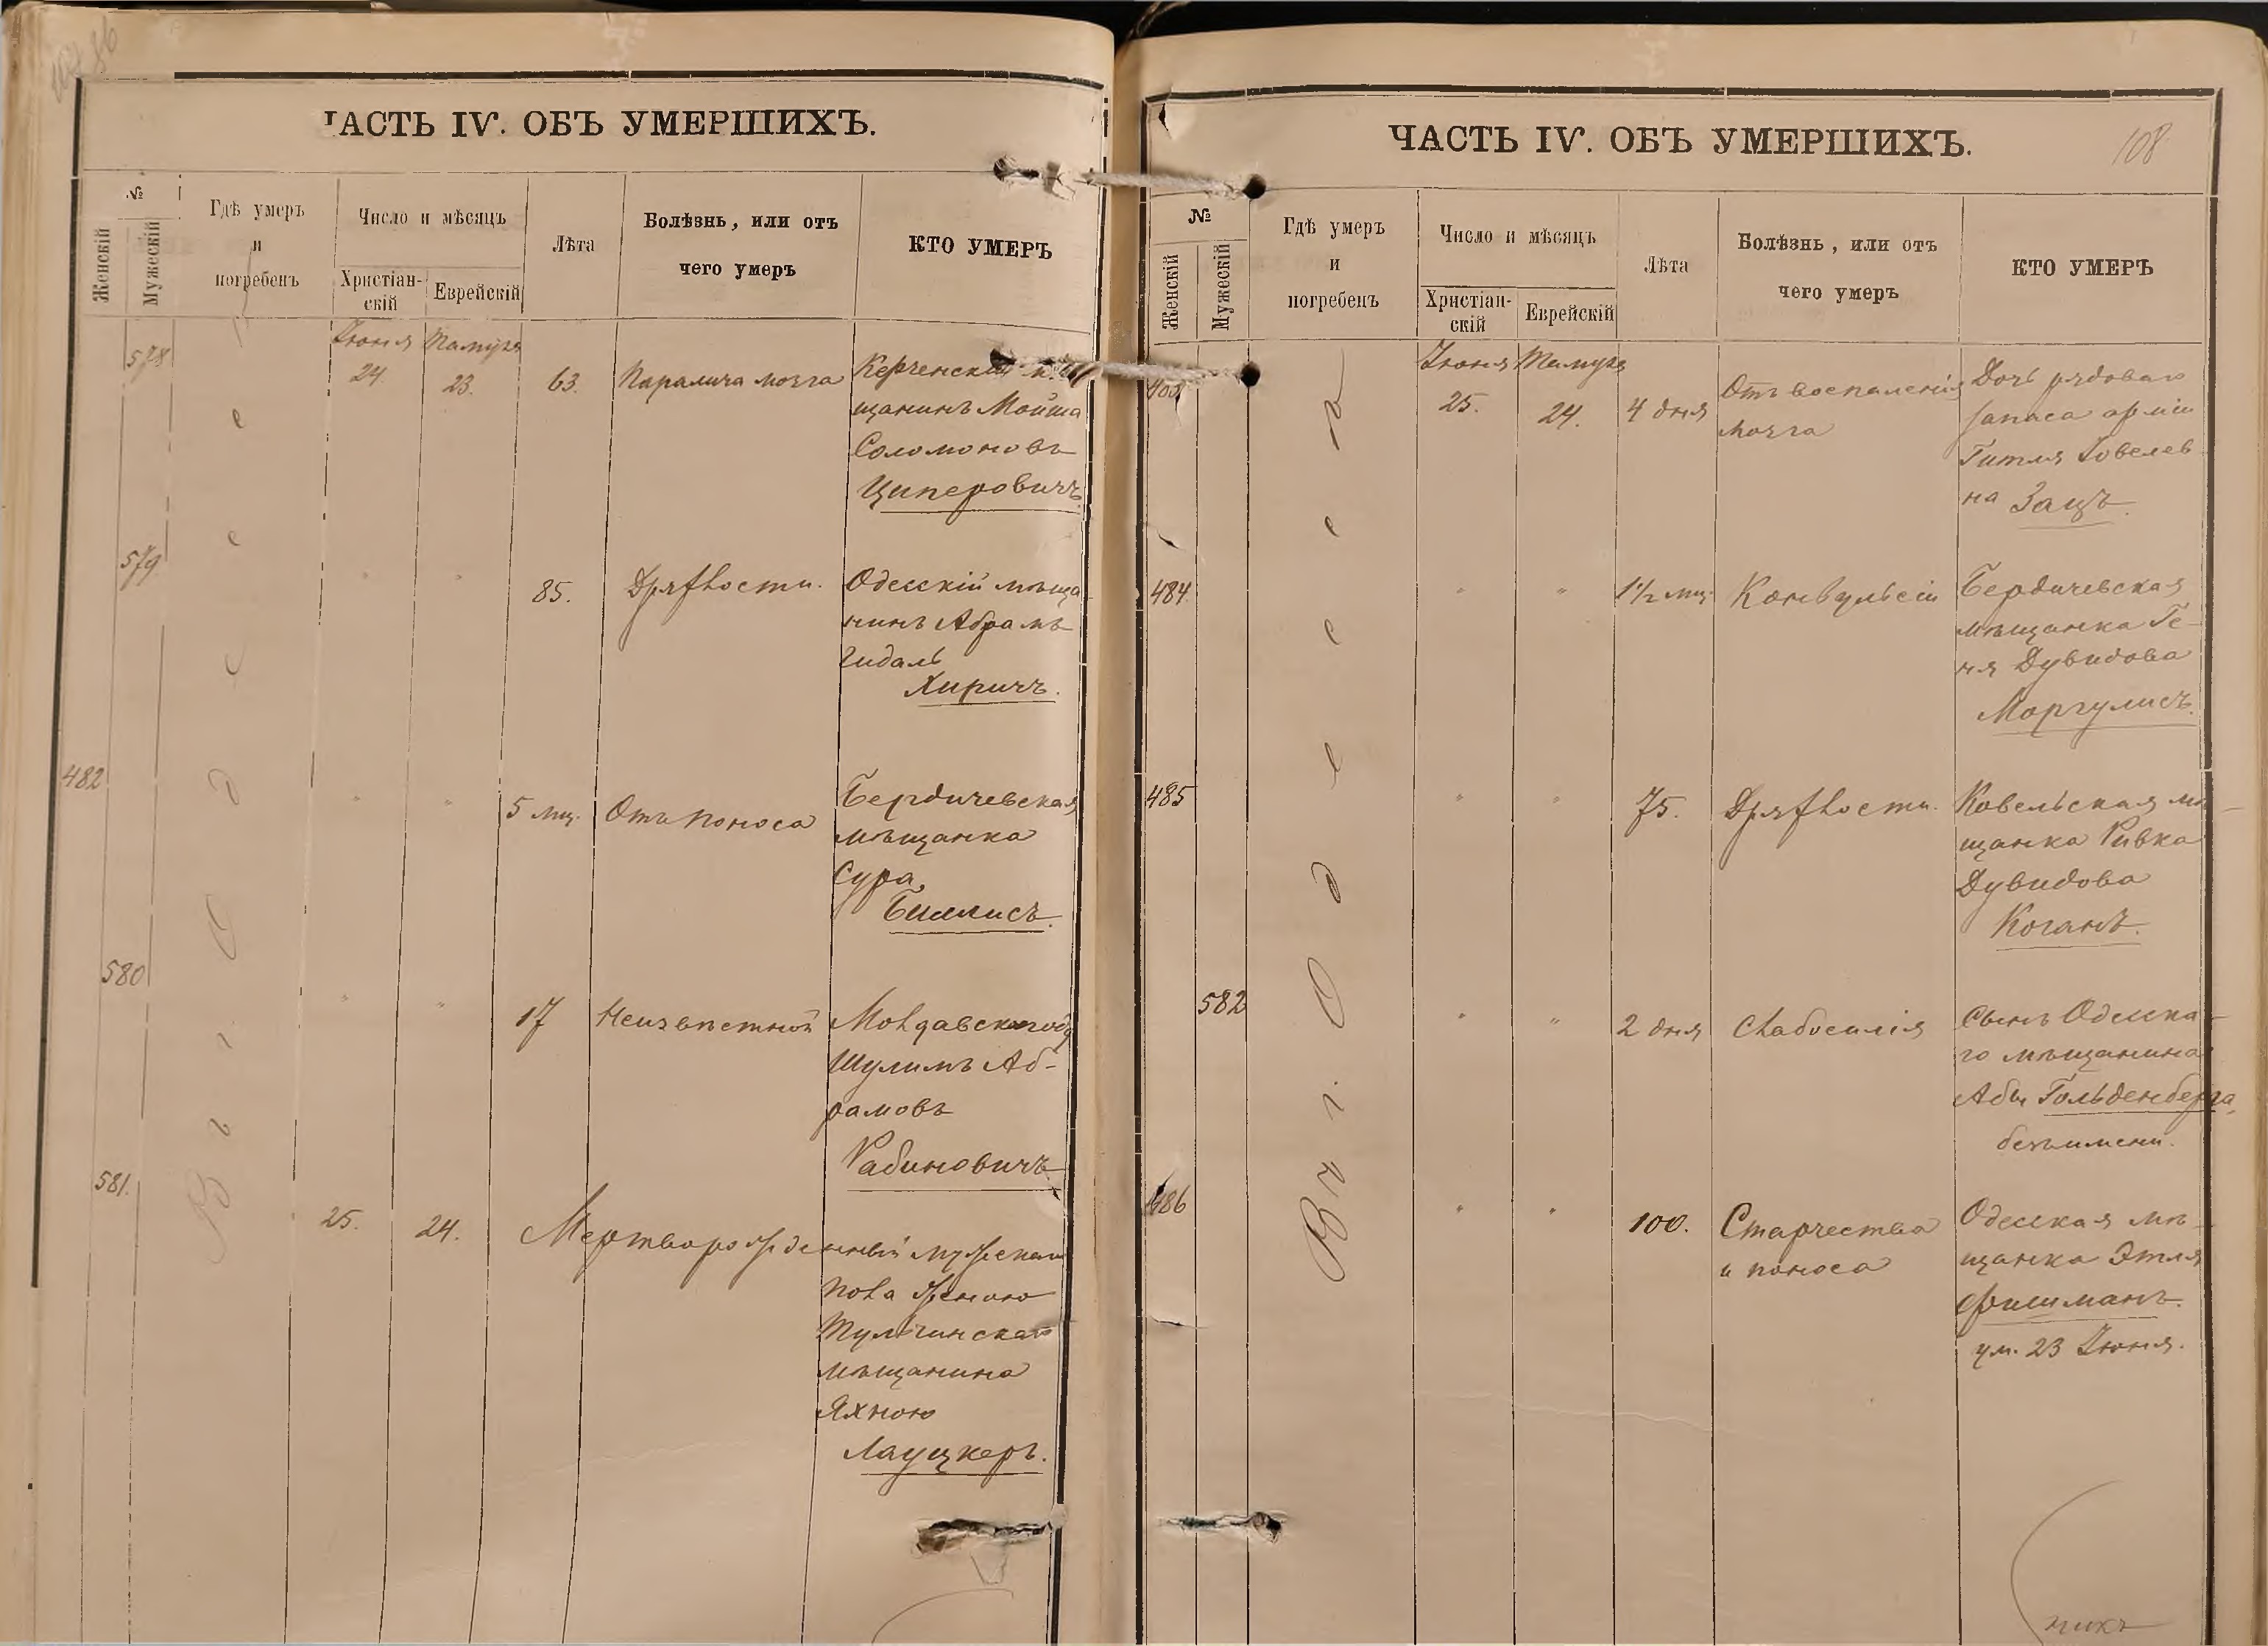 ЧАСТЬ IV. ОБЪ УМЕРШИХЪ.
№
Женскій
Мужескій
Гдѣ умеръ
и
погребенъ
Число и мѣсяцъ
Христіан-
скій
Еврейскій
Лѣта
Болѣзнь, или отъ
чего умеръ
КТО УМЕРЪ
В г. Одессе
578
Іюня
24
Тамуза
23.
63.
Паралича мозга
Керченскій
щанинъ Мойша
Соломоновъ
Циперовичъ
579
" "
85.
Дряхлости.
Одесскій мѣща
нинъ Абрамъ
Гидаль
Хиричъ.
482
" "
5 мц.
Отъ поноса
Бердичевская
мѣщанка
Сура
Бимисъ.
580
" "
17
Неизвестной
Молдавскоподд
Шулимъ Аб-
рамовъ
Рабиновичъ
581.
25.
24.
Мертворожденный мужескаго
пола женою
Тульчинскаго
мѣщанина
Яхною
Лауцкеръ.
ЧАСТЬ IV. ОБЪ УМЕРШИХЪ.
108
№
Женскій
Мужескій
Гдѣ умеръ
и
погребенъ
Число и мѣсяцъ
Христіан-
скій
Еврейскій
Лѣта
Болѣзнь, или отъ
чего умеръ
КТО УМЕРЪ
В г. Одессе
483
Іюня
25.
Тамуза
24.
4 дня
Отъ воспаленія
мозга
Дочь рядоваго
запаса арміи
Гитля Іовелев
на Зацъ.
484
" "
1 1/2 мц.
Конвульсіи
Бердичевская
мѣщанка Ге-
ня Дувидова
Моргулисъ.
485
" "
75.
Дряхлости.
Ковельская мѣ-
щанка Ривка
Дувидова
Коганъ.
582
" "
2 дня
Слабосилія
Сынъ Одесска-
го мѣщанина
Абы Гольденберга,
безъимени.
486
" "
100.
Старчества
и поноса
Одесская мѣ-
щанка Этля
Фишманъ.
ум. 23 Іюня.